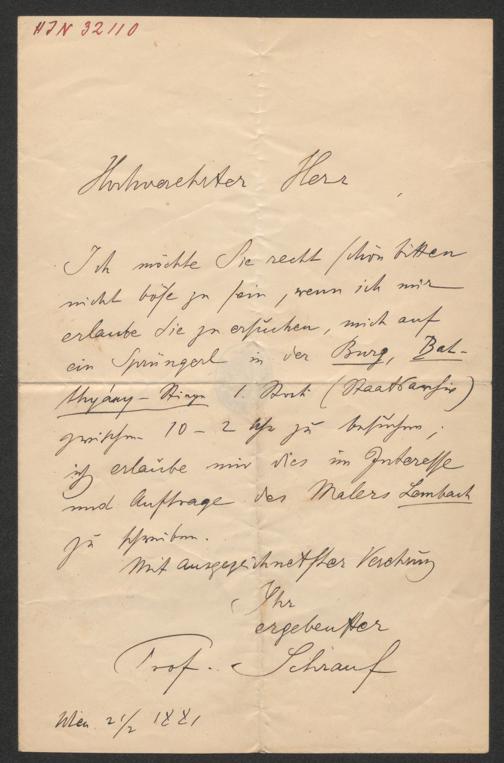 HIN 32110
Hochverehrter Herr
Ich möchte Sie recht schön bitten
nicht böse zu sein, wenn ich mir
erlaube Sie zu ersuchen, mich auf
ein Sprüngerl in der Burg, Bat-
thyány-Stiege 1. Stock (Staatsarchiv)
zwischen 10 - 2 Uhr zu besuchen;
ich erlaube mir dies im Interesse
und Auftrage des Malers Lembach
zu schreiben.
Mit ausgezeichnetster Verehrung
Ihr
ergebenster
Prof. Schrauf
Wien 21/2 1881